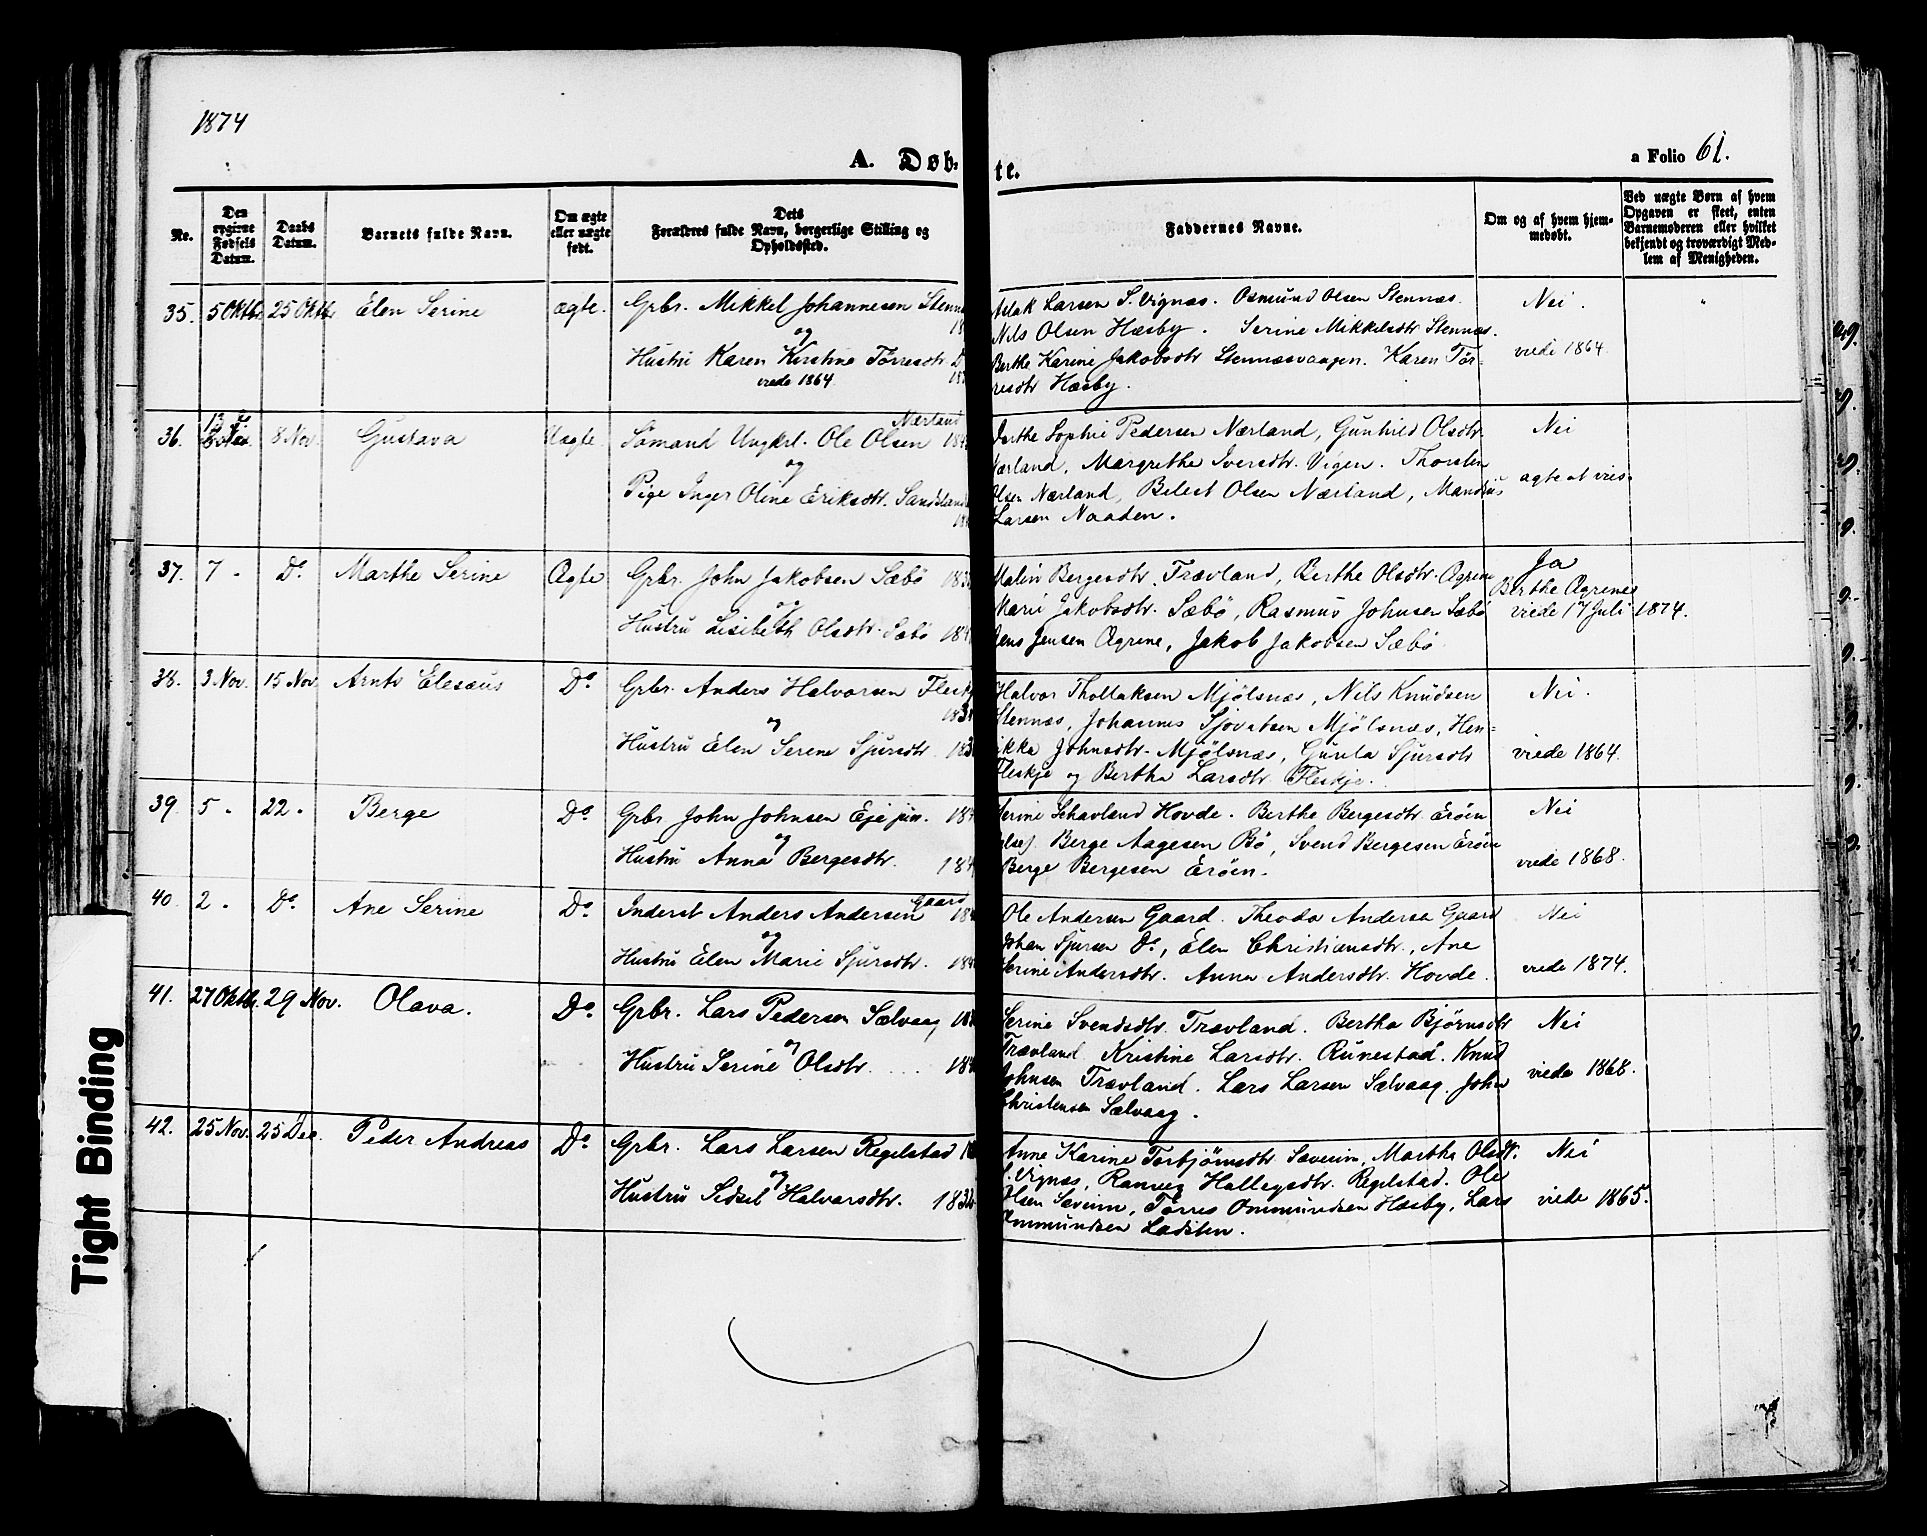 1874
A. Døb-
te.
a Folio 61.
No.
Den opgivne Fødsels Datum.
Daabs Datum.
Barnets fulde Navn.
Om ægte eller uægte født.
Dets Forældres fulde Navn, borgerlige Stilling og Opholdssted.
Faddernes Navne.
Om og af hvem hjemmedøbt.
Ved uægte Børn af hvem Opgaven er skeet, enten Barnemoderen eller hvilket bekjendt og troværdigt Medlem af Menigheden.
35. 5 Oktbr. 25 Oktb. Elen Serine ægte. Grbr. Mikkel Johannesen Stenn
og
Hustru Karen Kirstine Tørresdtr. D
viede 1864.
Aslak Larsen S. Vignæs. Osmund Olsen Stennæs.
Nils Olsen Hæsby. Serine Mikkelsdtr Stennæs.
Berthe Karine Jakobsdtr Stennæsvaagen. Karen Tør-
resdtr Hæsby.
Nei.
viede 1864.
36. 13 8 Nov. Gustava Uægte. Sømand Ungkrl. Ole Olsen Nærland
og
Pige Inger Oline Eriksdtr. Sandsland
Sophie Pedersen Nærland, Gunhild Olsdtr.
Nærland, Margrethe Iversdtr. Vigen. Thorsten
Olsen Nærland, Olsen Nærland,
Larsen Naaden.
Nei
agte at vies.
37. 7 - Do. Marthe Serine Ægte Grbr. John Jakobsen Sæbö 183
og
Hustru Lisibeth Olsdtr. Sæbö 184
Malin Bergesdtr. Trævland, Berthe Olsdtr. Øgrene
Marie Jakobsdtr. Sæbö, Rasmus Johnsen Sæbö
Jens Jensen Øgrene, Jakob Jakobsen Sæbö.
Ja
Berthe Øgrenes
viede 17 Juli 1874.
38. 3 Nov. 15 Nov. Arnts Elesæus Do. Grbr. Anders Halvorsen Fleskj
183
og
Hustru Elen Serene Sjursdtr. 183
Halvor Thollaksen Mjölsnæs, Nils Knudsen
Stennæs, Johannes Sjovatsen Mjölsnæs, Hen-
rikka Johnsdtr. Mjölsnæs, Gurila Sjursdtr
Fleskje og Bertha Larsdtr. Fleskje.
Nei.
viede 1864.
39. 5 - 22 - Berge Do. Grbr John Johnsen Eje jun. 184
og
Hustru Anna Bergesdtr. 184
Serine Schavland Hovde. Berthe Bergesdtr. Eröen
Berge Aagesen Bö, Svend Bergesen Eröen
Berge Bergesen Eröen.
Nei
viede 1868.
40. 2 - Do. Ane Serine Do. Inderst Anders Andersen Gaard 184
og
Hustru Elen Marie Sjursdtr. 184
Ole Andersen Gaard. Theoda Andersen Gaard
Johan Sjursen Do, Elen Christiansdtr., Ane
Serine Andersdtr. Anna Andersdtr. Hovde.
Nei
viede 1874.
41. 27 Oktb. 29 Nov. Olava. Do. Grbr. Lars Pedersen Sælvaag 18
og
Hustru Serine Olsdtr. .... 184
Serine Svendsdtr. Trævland. Bertha Björnsdtr
Trævland Kristine Larsdtr. Runestad. Knud
Johnsen Trævland. Lars Larsen Sælvaag. John
Christensen Sælvaag.
Nei
viede 1868.
42. 25 Nov. 25 Dec. Peder Andreas Do. Grbr. Lars Larsen Regelstad 1
og
Hustru Sidsel Halvorsdtr. 183
Anne Karine Torbjörnsdtr. Severin, Martha Olsdt.
S. Vignæs, Ranveg Hallegsdtr. Regelstad. Ole
Olsen Severin, Tørres Ommundsen Hæsby, Lars
Ommundsen Ladsten.
Nei
viede 1865.
Tight Binding